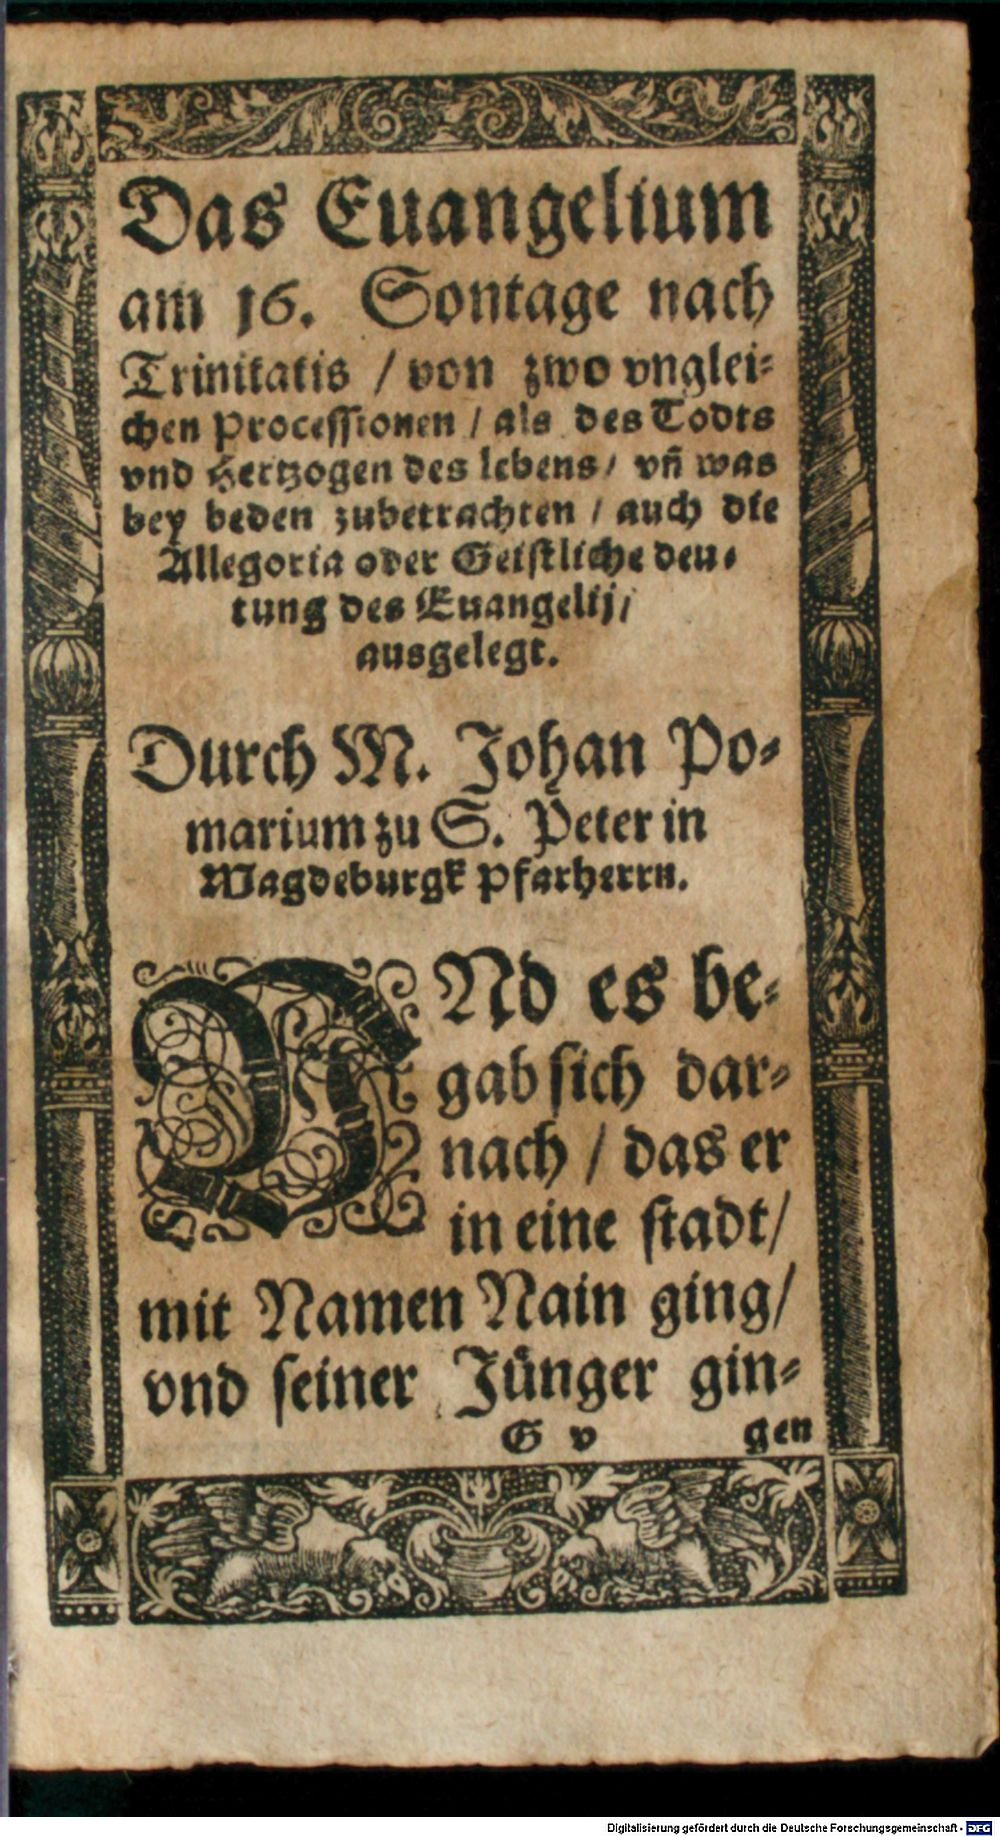 Das Euangelium
am 16. Sontage nach
Trinitatis / von zwo vnglei-
chen Processionen / als des Todts
vnd Hertzogen des lebens / vñ was
bey beden zubetrachten / auch die
Allegoria oder Geistliche deu-
tung des Euangelij /
ausgelegt.
Durch M. Johan Po-
marium zu S. Peter in
Magdeburgk Pfarherrn.
VNd es be-
gab sich dar-
nach / das er
in eine stadt /
mit Namen Nain ging /
vnd seiner Jünger gin-
G v gen
Digitalisierung gefördert durch die Deutsche Forschungsgemeinschaft - DFG